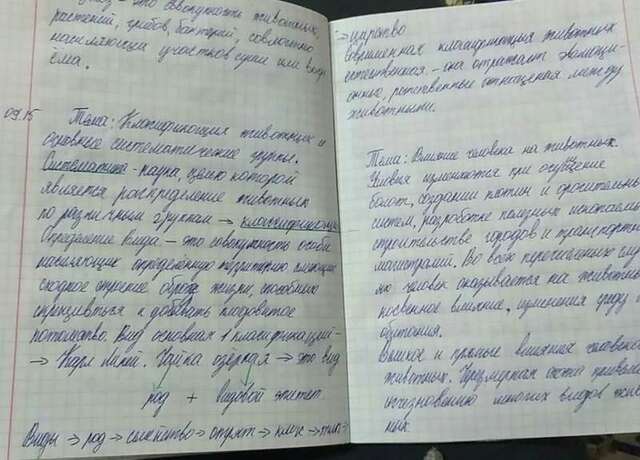 это совокупность животных,
растений, грибов, бактерий, совместно
населяющих участков суши или
ёма.
09.15
Тема: Классификация животных и
основные систематические группы.
Систематика - наука, целью которой
является распределение животных
по различным группам → классификация
Определение вида – это совокупность особей
населяющих определённую территорию имеющие
сходное строение образ жизни, способные
скрещиваться и давать плодовитое
потомство. Вид основная 1 классификаций –
→ Карл Линей. Чайка озёрная → это вид
род + видовой эпитет.
Виды → род → семейство → отряд → класс → типа →
→ царство
Современная классификация животных
естественная – она отражает
родственные отношения между
животными.
Тема: Влияние человека на животных.
Условия изменяются при осушение
болот, создании плотин и оросительных
систем, разработке полезных ископаемых
строительстве городов и транспортных
магистралей. Во всех перечисленных
человек оказывается на животных
косвенное влияние, изменения среду
обитания.
и прямые влияния человека
животных. Чрезмерная охота привела
исчезновению многих видов
ных.